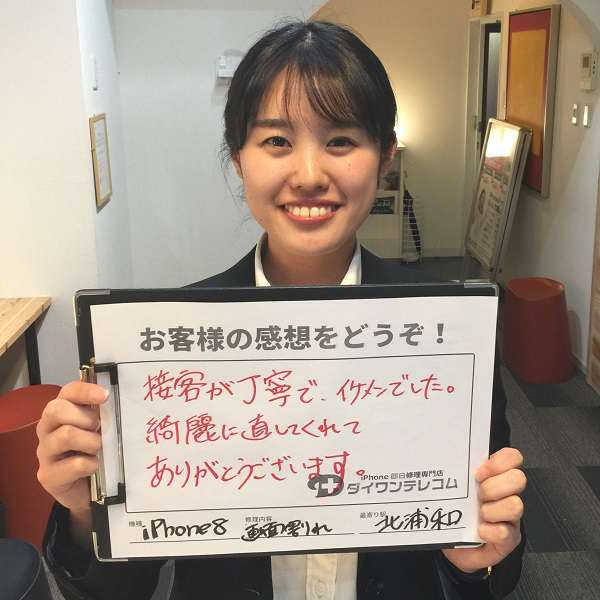 お客様の感想をどうぞ！
接客が丁寧で、イケメンでした。
綺麗に直してくれて
ありがとうございます。
iPhone 即日修理専門店
ダイワンテレコム
機種 iPhone8 修理内容 画面割れ 最寄り駅 北浦和